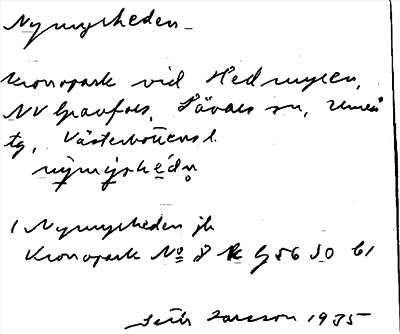 Nymyrheden
Kronopark vid Hedmyren,
NV Gravfors, Sävars sn, Umeå
tg, Västerbottens l.
nymyrhedn
1 Nymyrheden jb
Kronopark No 8 Rk G 56 So b1
Larsson 1935